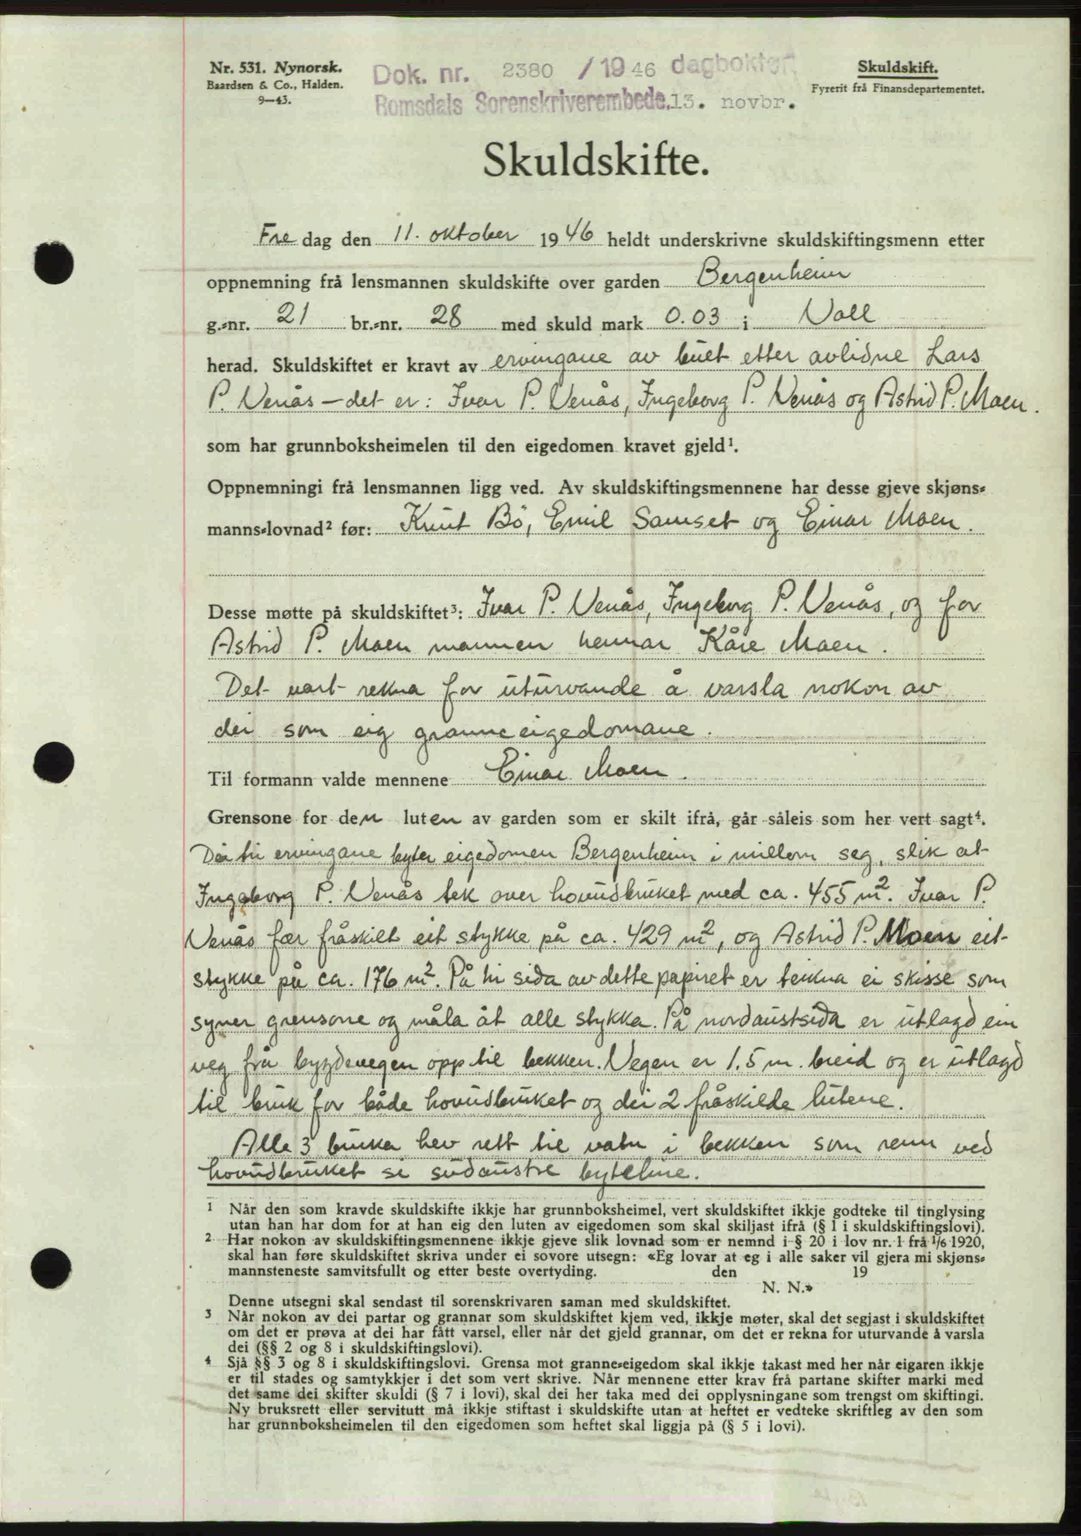 Nr. 531. Nynorsk.
Baardsen & Co., Halden.
9—43.
Dok. nr. 2380 / 1946 dagbokten
Romsdals Sorenskriverembede. 13. novbr.
Skuldskift.
Fyrerit frå Finansdepartementet.
Skuldskifte.
Fre dag den 11. oktober 1946 heldt underskrivne skuldskiftingsmenn etter
oppnemning frå lensmannen skuldskifte over garden Bergenheim
g.=nr. 21 br.=nr. 28 med skuld mark 0.03 i Voll
herad. Skuldskiftet er kravt av ervingane av buet etter avlidne Lars
P. Venås — det er: Ivar P. Venås, Ingeborg P. Venås og Astrid P. Moen.
som har grunnboksheimelen til den eigedomen kravet gjeld¹.
Oppnemningi frå lensmannen ligg ved. Av skuldskiftingsmennene har desse gjeve skjøns=
manns=lovnad² før: Knut Bö, Emil Samset og Einar Moen.
Desse møtte på skuldskiftet³: Ivar P. Venås, Ingeborg P. Venås, og for
Astrid P. Moen mannen hennar Kåre Moen.
Det vart rekna for uturvande å varsla nokon av
dei som eig granneeigedomane.
Til formann valde mennene Einar Moen.
Grensone for den luten av garden som er skilt ifrå, går såleis som her vert sagt⁴.
Dei tri ervingane byter eigedomen Bergenheim i millom seg, slik at
Ingeborg P. Venås tek over hovudbruket med ca. 455 m². Ivar P.
Venås fær fråskilt eit stykke på ca. 429 m², og Astrid P. Moen eit
stykke på ca. 176 m². På hi sida av dette papiret er teikna ei skisse som
syner grensone og måla åt alle stykka. På nordaustsida er utlagd ein
veg frå bygdevegen opp til bekken. Vegen er 1.5 m. breid og er utlagd
til bruk for både hovudbruket og dei 2 fråskilde lutene.
Alle 3 bruka hev rett til vatn i bekken som renn ved
hovudbruket si sudaustre byteline.
1 Når den som kravde skuldskifte ikkje har grunnboksheimel, vert skuldskiftet ikkje godteke til tinglysing
utan han har dom for at han eig den luten av eigedomen som skal skiljast ifrå (§ 1 i skuldskiftingslovi).
2 Har nokon av skuldskiftingsmennene ikkje gjeve slik lovnad som er nemnd i § 20 i lov nr. 1 frå 1/6 1920,
skal han føre skuldskiftet skriva under ei sovore utsegn: «Eg lovar at eg i alle saker vil gjera mi skjøns=
mannsteneste samvitsfullt og etter beste overtyding. den 19
N. N.»
Denne utsegni skal sendast til sorenskrivaren saman med skuldskiftet.
3 Når nokon av dei partar og grannar som skuldskiftet kjem ved, ikkje møter, skal det segjast i skuldskiftet
om det er prøva at dei har fått varsel, eller når det gjeld grannar, om det er rekna for uturvande å varsla
dei (§§ 2 og 8 i skuldskiftingslovi).
4 Sjå §§ 3 og 8 i skuldskiftingslovi. Grensa mot granne=eigedom skal ikkje takast med her når eigaren ikkje
er til stades og samtykkjer i det som vert skrive. Når mennene etter krav frå partane skifter marki med
det same dei skifter skuldi (§ 7 i lovi), skal dei her taka med dei opplysningane som trengst om skiftingi.
Ny bruksrett eller servitutt må ikkje stiftast i skuldskifte utan at heftet er vedteke skriftleg av den som
har grunnboksheimelen til den eigedomen som heftet skal liggja på (§ 5 i lovi).